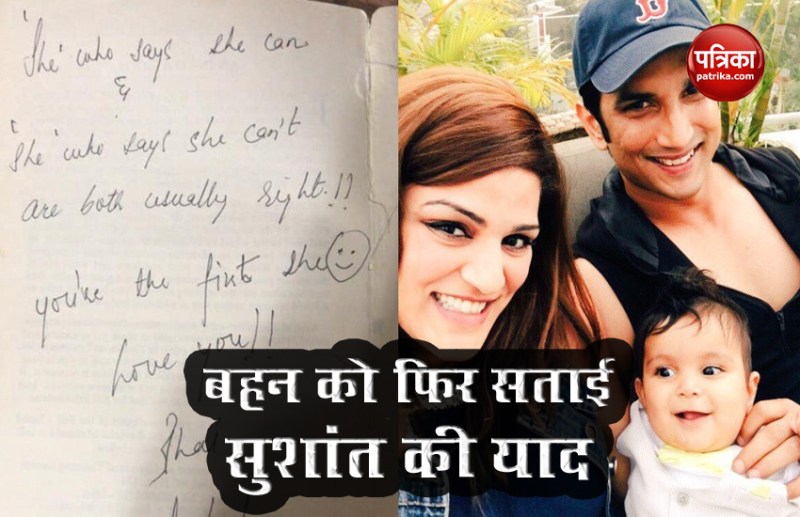 'She' who says she can
&
'She' who says she can't
are both usually right.!!
you're the first she
Love you!!
Bhai
पत्रिका
patrika.com
B
बहन को फिर सताई
सुशांत की याद